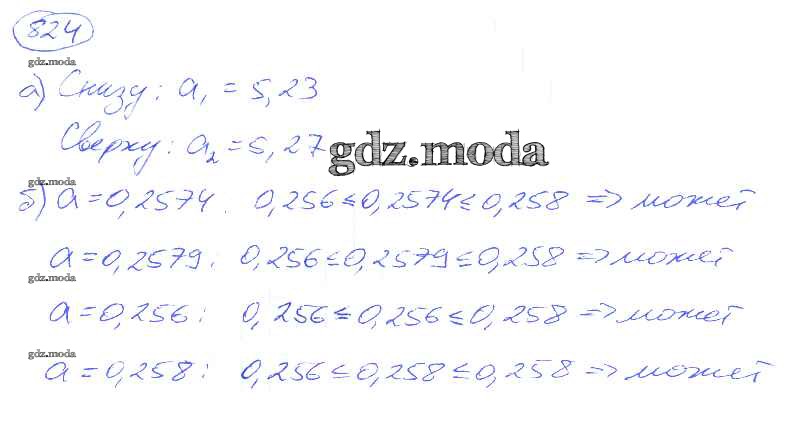 824
gdz.moda
а) Снизу: a₁ = 5,23
Сверху: a₂ = 5,27
gdz.moda
gdz.moda
б) a = 0,2574: 0,256 ≤ 0,2574 ≤ 0,258 => может
a = 0,2579: 0,256 ≤ 0,2579 ≤ 0,258 => может
gdz.moda
a = 0,256: 0,256 ≤ 0,256 ≤ 0,258 => может
gdz.moda
a = 0,258: 0,256 ≤ 0,258 ≤ 0,258 => может